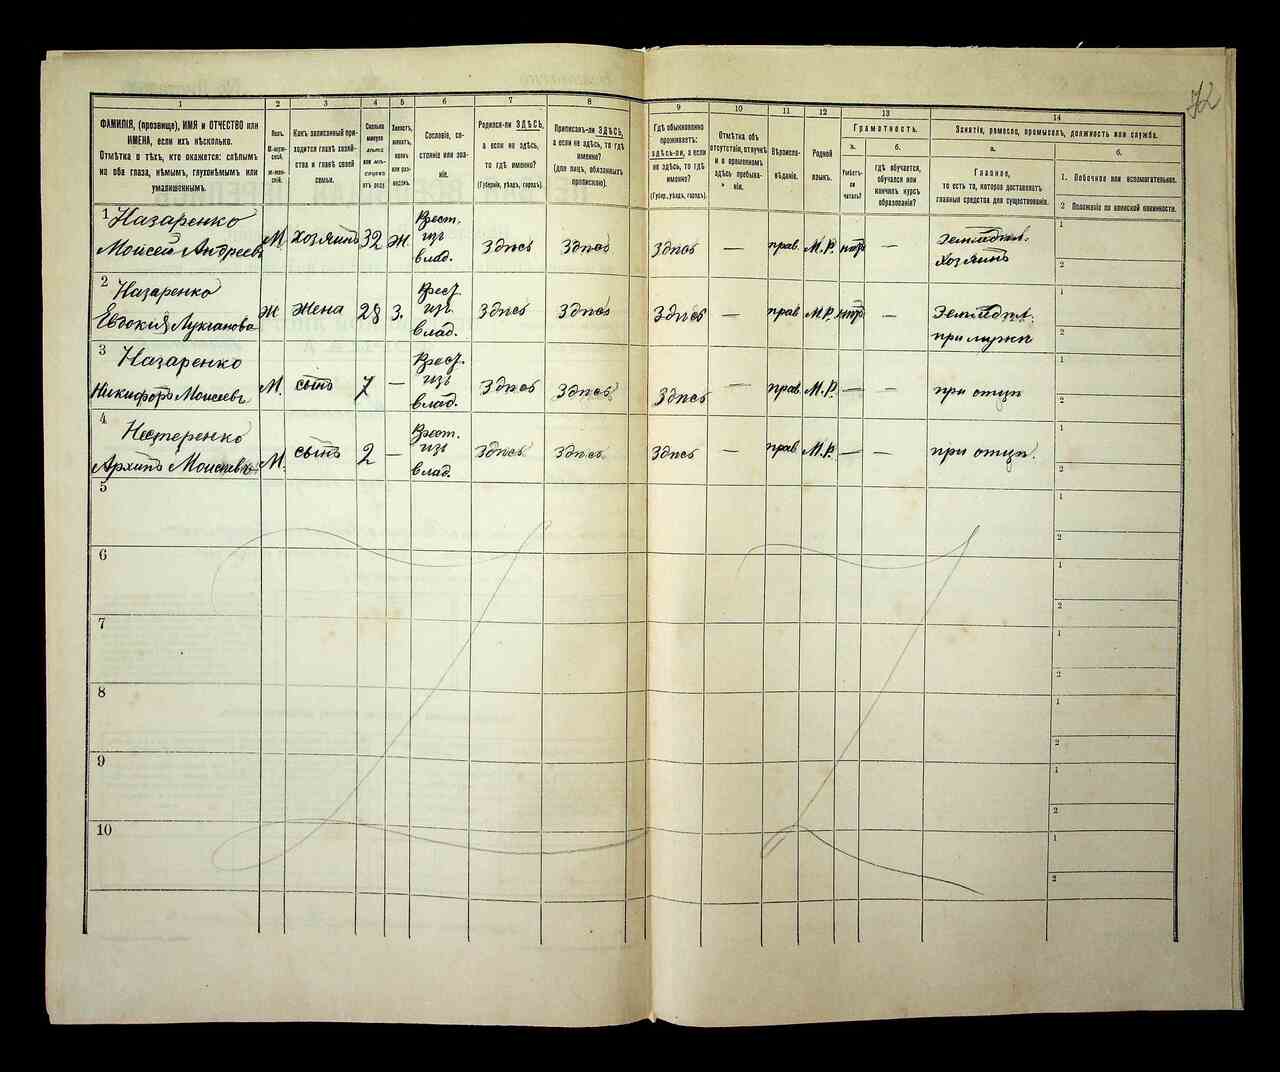 72
1 2 3 4 5 6 7 8 9 10 11 12 13 14
ФАМИЛІЯ, (прозвище), ИМЯ и ОТЧЕСТВО или
ИМЕНА, если ихъ нѣсколько.
Отмѣтка о тѣхъ, кто окажется: слѣпымъ
на оба глаза, нѣмымъ, глухонѣмымъ или
умалишеннымъ.
Полъ.
М-мужской.
Ж-женскій.
Какъ записанный при-
ходится главѣ хозяй-
ства и главѣ своей
семьи.
Сколько
минуло
лѣтъ
или мѣ-
сяцевъ
отъ роду
Холостъ,
женатъ,
вдовъ
или раз-
веденъ.
Сословіе, со-
стояніе или зва-
ніе.
Родился-ли ЗДѢСЬ,
а если не здѣсь,
то гдѣ именно?
(Губернія, уѣздъ, городъ).
Приписанъ-ли ЗДѢСЬ,
а если не здѣсь, то гдѣ
именно?
(для лицъ, обязанныхъ
припискою).
Гдѣ обыкновенно
проживаетъ:
здѣсь-ли, а если
не здѣсь, то гдѣ
именно?
(Губер., уѣздъ, городъ).
Отмѣтка объ
отсутствіи, отлучкѣ
и о временномъ
здѣсь пребыва-
ніи.
Вѣроиспо-
вѣданіе.
Родной
языкъ.
Грамотность.
а.
Умѣетъ-
ли
читать?
б.
гдѣ обучается,
обучался или
кончилъ курсъ
образованія?
Занятіе, ремесло, промыселъ, должность или служба.
а.
Главное,
то есть то, которое доставляетъ
главныя средства для существованія.
б.
1. Побочное или вспомогательное.
2 Положеніе по воинской повинности.
1 Назаренко
Моисей Андреевъ М хозяинъ 32 Ж. Крест. изъ влад. Здѣсь Здѣсь Здѣсь — прав. М.Р. нѣтъ — Земледѣл. хозяинъ
2 Назаренко
Евдокия Лукьянова Ж жена 28 З. Крест. изъ влад. Здѣсь Здѣсь Здѣсь — прав М.Р. нѣтъ — Земледѣл. при мужѣ
3 Назаренко
Никифоръ Моисеевъ М. сынъ 7 — Крест. изъ влад. Здѣсь Здѣсь Здѣсь — прав. М.Р. — — при отцѣ
4 Нестеренко
Архипъ Моисеевъ М. сынъ 2 — Крест. изъ влад. Здѣсь Здѣсь Здѣсь — прав М.Р. — — при отцѣ.
5
6
7
8
9
10